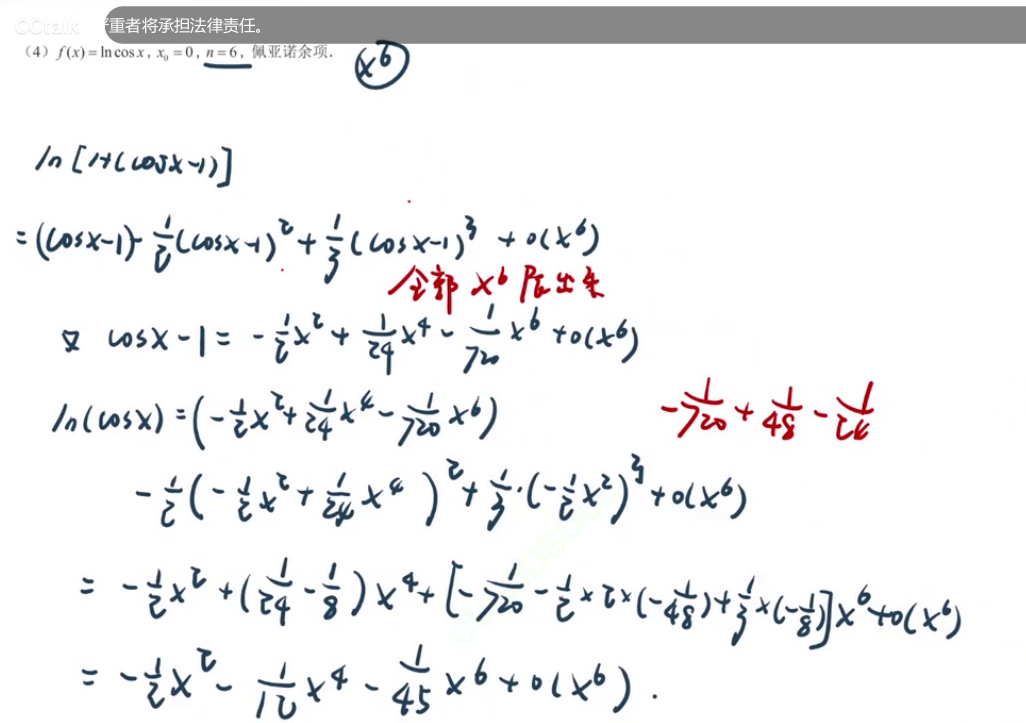 CCtalk 严重者将承担法律责任。
(4) f(x) = ln cos x, x₀ = 0, n = 6, 佩亚诺余项. x⁶
ln[1+(cosx-1)]
= (cosx-1) - 1/2(cosx-1)² + 1/3(cosx-1)³ + o(x⁶)
全部 x⁶ 出来
又 cosx-1 = -1/2x² + 1/24x⁴ - 1/720x⁶ + o(x⁶)
ln(cosx) = (-1/2x² + 1/24x⁴ - 1/720x⁶) -1/720 + 1/48 - 1/24
-1/2(-1/2x² + 1/24x⁴)² + 1/3·(-1/2x²)³ + o(x⁶)
= -1/2x² + (1/24 - 1/8)x⁴ + [-1/720 - 1/2×2×(-1/48) + 1/3×(-1/8)]x⁶ + o(x⁶)
= -1/2x² - 1/12x⁴ - 1/45x⁶ + o(x⁶).